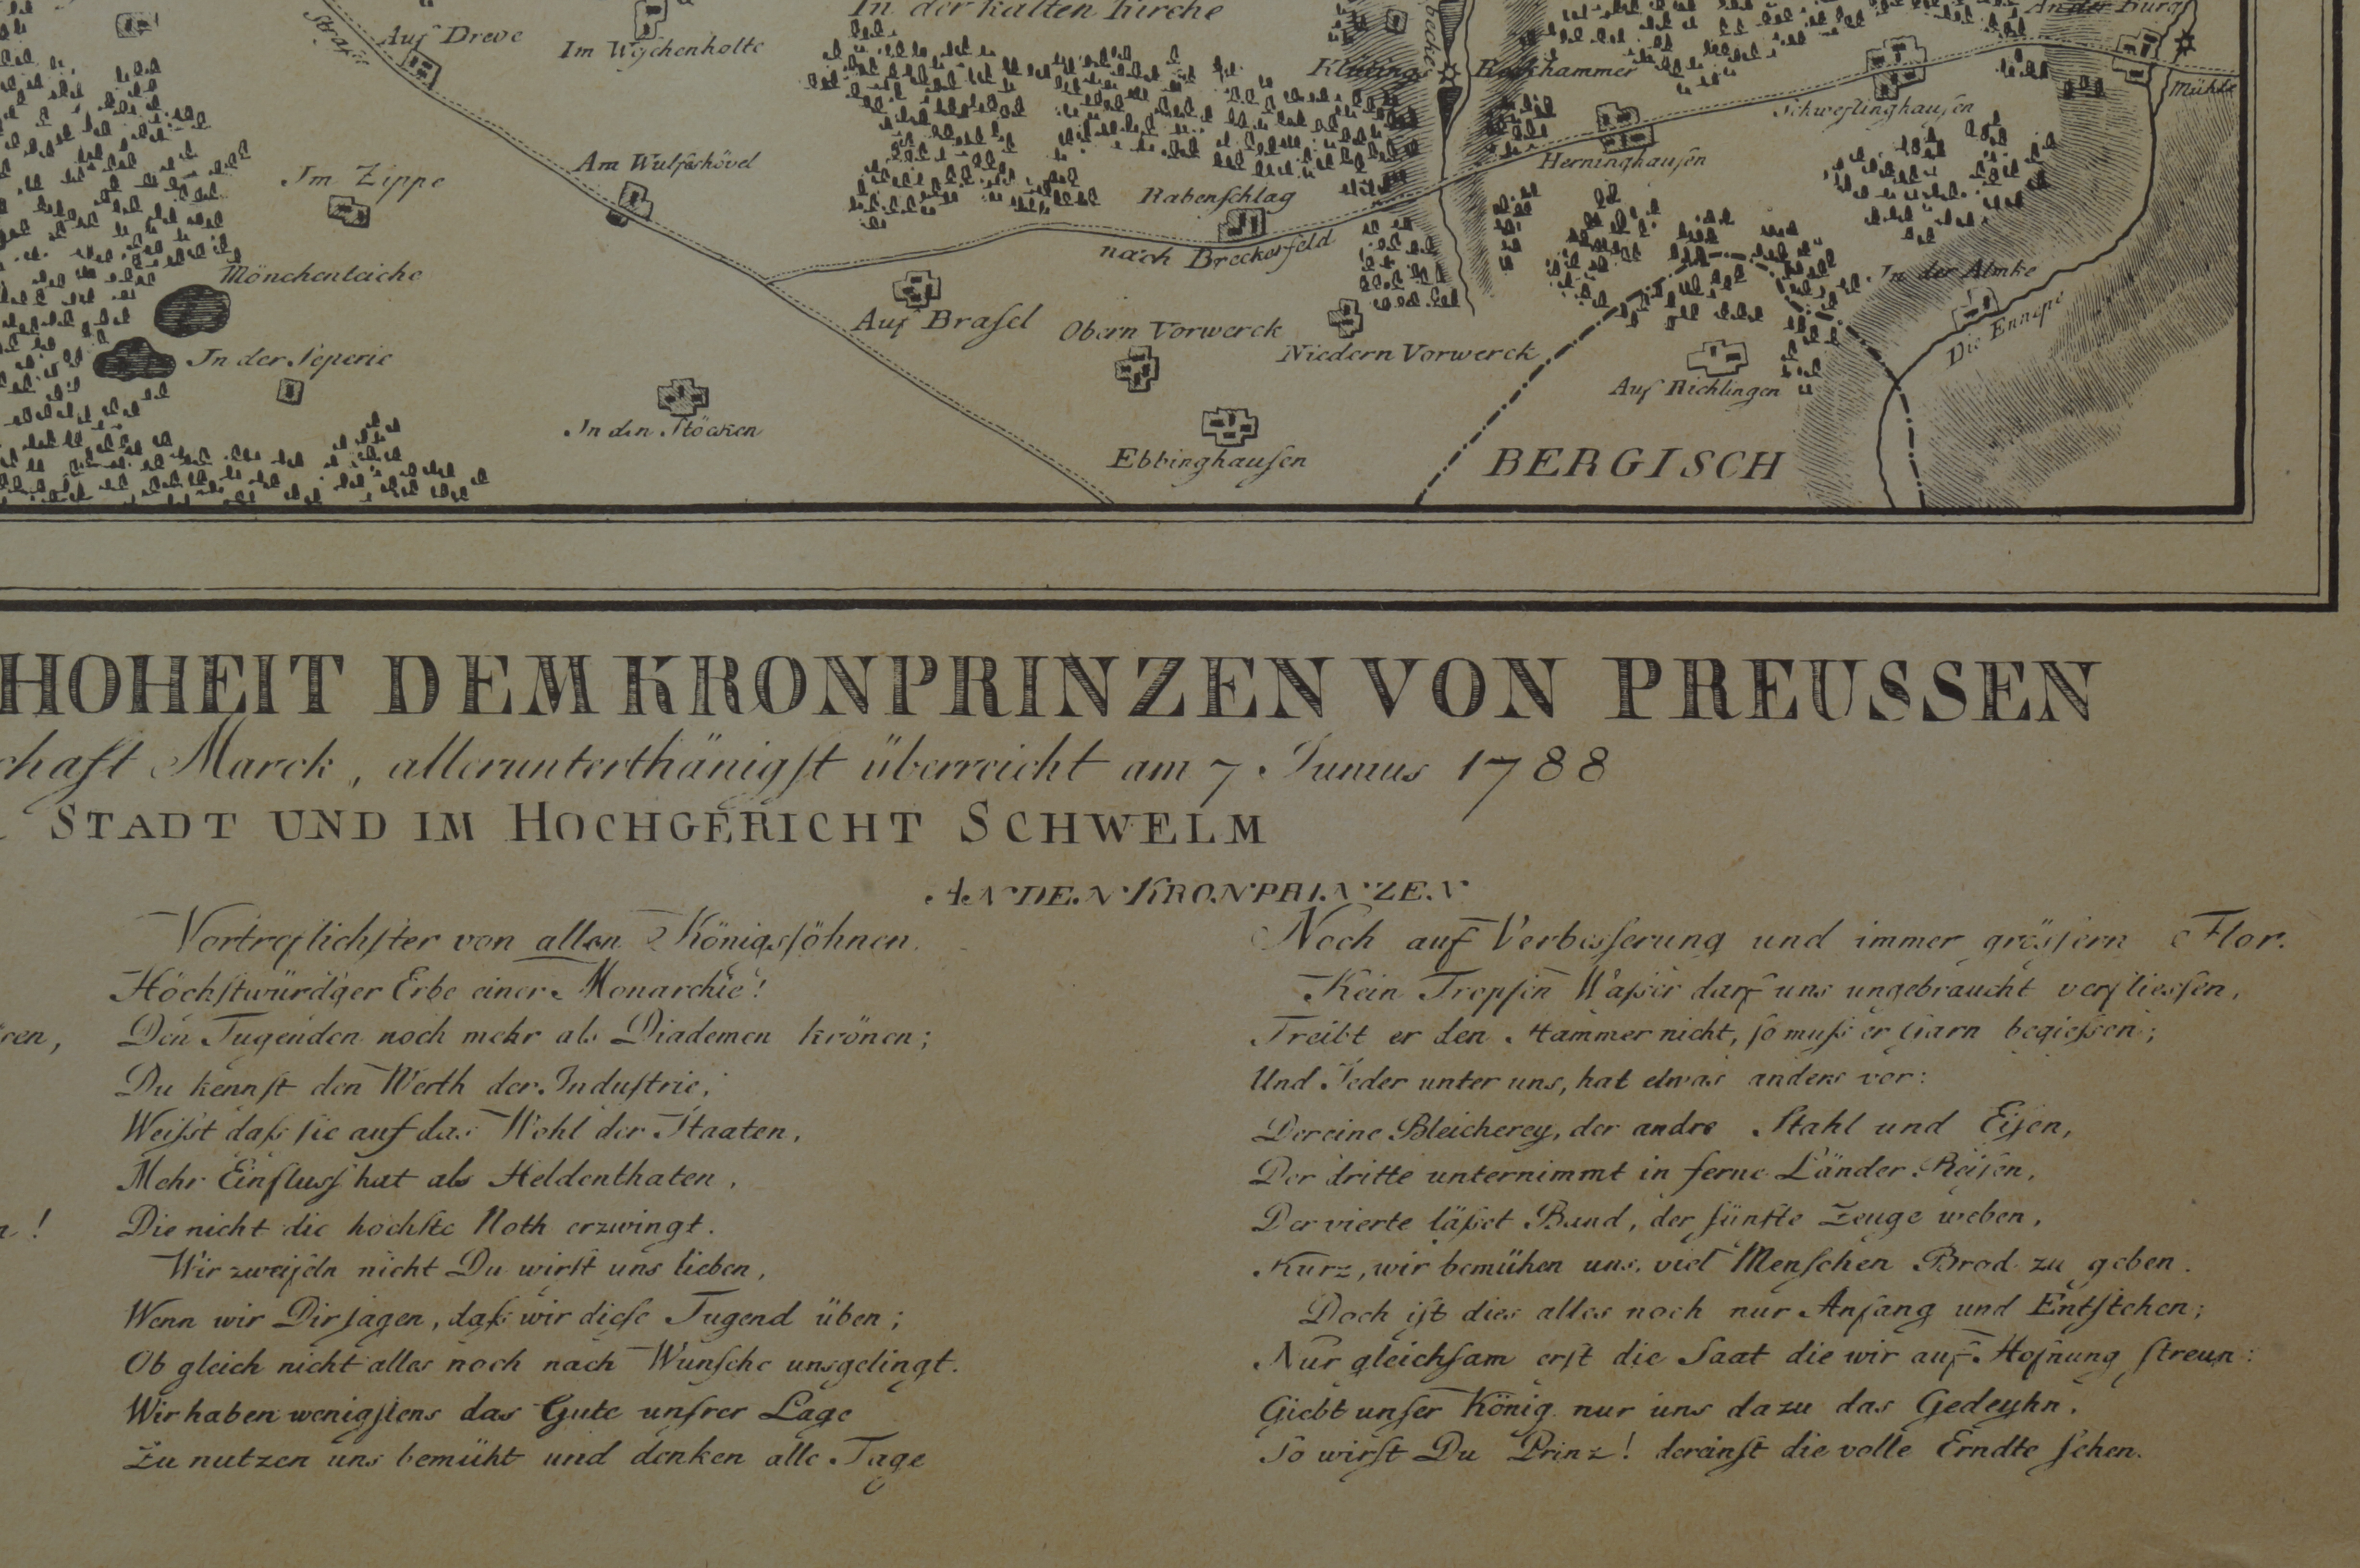 In der kalten Kirche
An der Burg
Auf Dreve
Im Wychenholte
Straße
becke
Klutings
Reckhammer
Mühle
Schweflinghauſen
Herninghauſen
Am Wulfeshövel
Im Zippe
Rabenſchlag
nach Breckerfeld
Mönchenteiche
In der Almke
Die Ennepe
Auf Braſel
Obern Vorwerck
Niedern Vorwerck
In der Peperie
Auf Richlingen
In den Stöcken
Ebbinghauſen
BERGISCH
HOHEIT DEM KRONPRINZEN VON PREUSSEN
chaft Marck, allerunterthänigſt überreicht am 7 Junius 1788
STADT UND IM HOCHGERICHT SCHWELM
AN DEN KRONPRINZEN
Vortreflichſter von allen Königsſöhnen.
Höchſtwürd'ger Erbe einer Monarchie!
Den Tugenden noch mehr als Diademen krönen;
Du kennſt den Werth der Induſtrie,
Weißt daß ſie auf das Wohl der Staaten,
Mehr Einfluſs hat als Heldenthaten,
Die nicht die hochſte Noth erzwingt.
Wir zweifeln nicht Du wirſt uns lieben,
Wenn wir Dir ſagen, daß wir dieſe Tugend üben;
Ob gleich nicht alles noch nach Wunſche uns gelingt.
Wir haben wenigſtens das Gute unſrer Lage
Zu nutzen uns bemüht und denken alle Tage
ren,
n!
Noch auf Verbeſſerung und immer gröſſern Flor.
Kein Tropfen Waßer darf uns ungebraucht verflieſſen,
Treibt er den Hammer nicht, ſo muß er Garn begieſsen;
Und Jeder unter uns, hat etwas anders vor:
Der eine Bleicherey, der andre Stahl und Eiſen,
Der dritte unternimmt in ferne Länder Reiſen,
Der vierte läßet Band, der fünfte Zeuge weben,
Kurz, wir bemühen uns, viel Menſchen Brod zu geben.
Doch iſt dies alles noch nur Anfang und Entſtehen;
Nur gleichſam erſt die Saat die wir auf Hofnung ſtreun:
Giebt unſer König nur uns dazu das Gedeyhn,
So wirſt Du Prinz! dereinſt die volle Erndte ſehen.